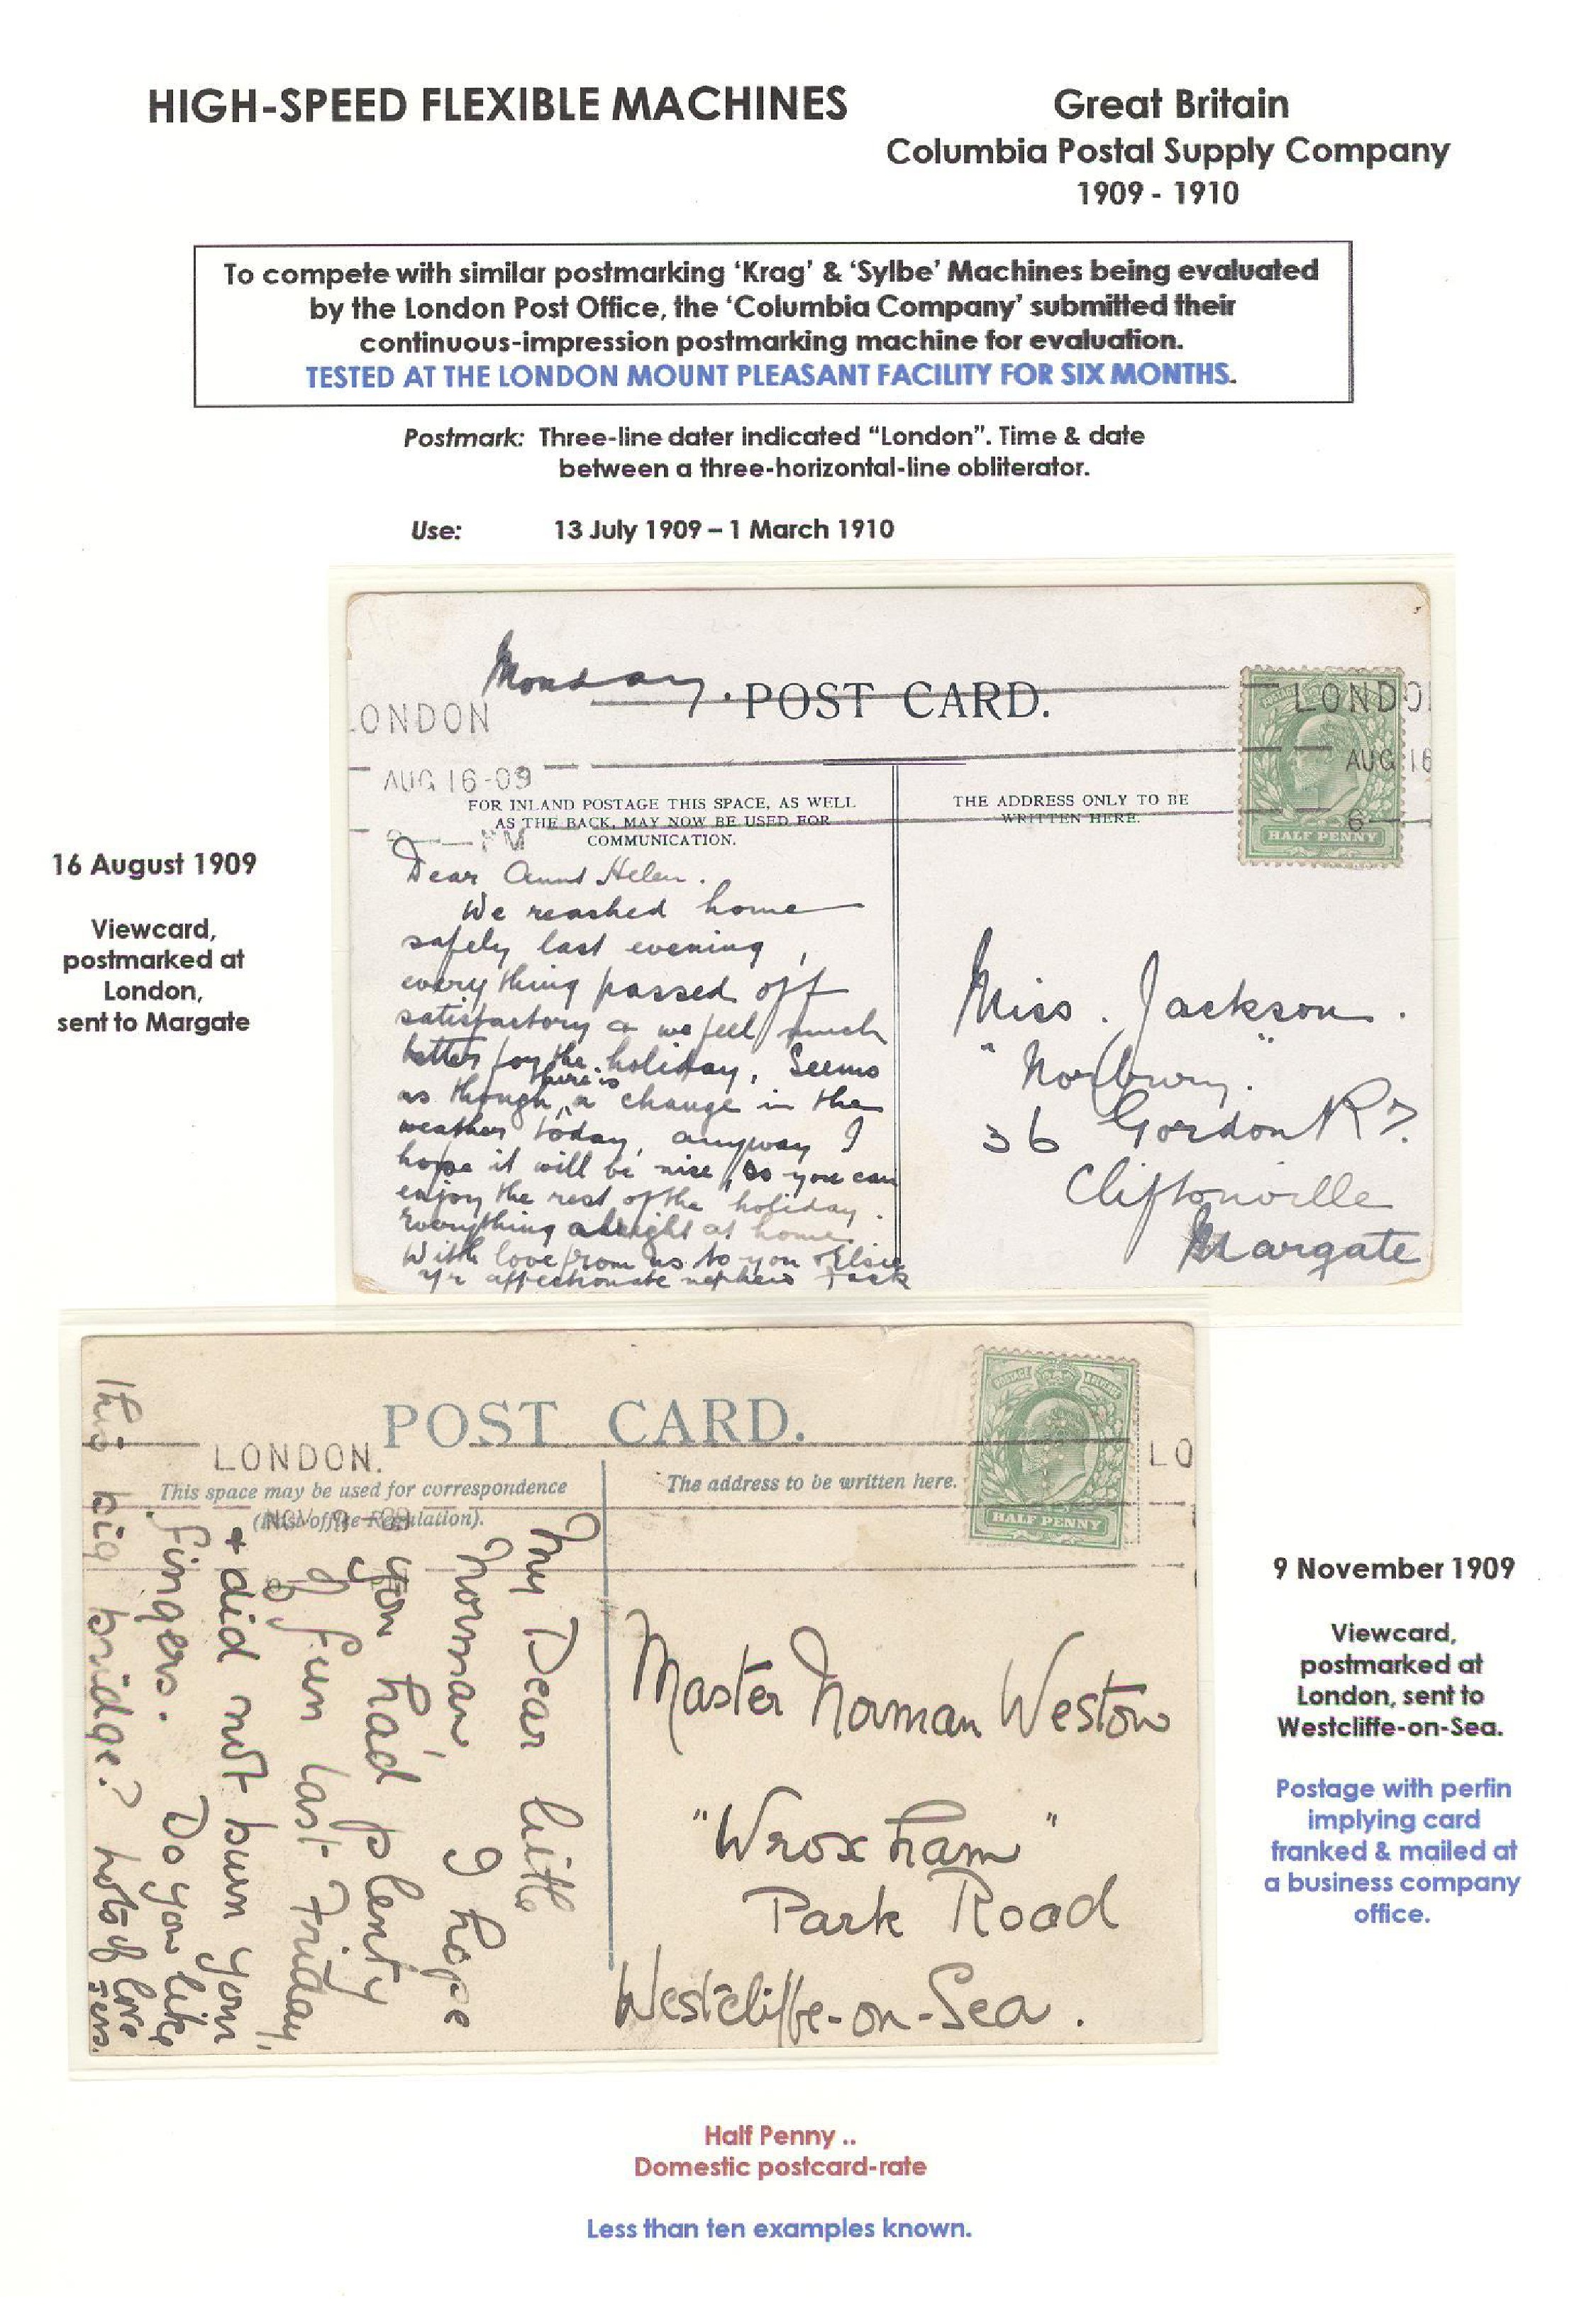 HIGH-SPEED FLEXIBLE MACHINES
Great Britain
Columbia Postal Supply Company
1909 - 1910
To compete with similar postmarking ‘Krag’ & ‘Sylbe’ Machines being evaluated
by the London Post Office, the ‘Columbia Company’ submitted their
continuous-impression postmarking machine for evaluation.
TESTED AT THE LONDON MOUNT PLEASANT FACILITY FOR SIX MONTHS.
Postmark: Three-line dater indicated “London”. Time & date
between a three-horizontal-line obliterator.
Use: 13 July 1909 – 1 March 1910
Monday.
POST CARD.
LONDON
AUG 16-09
PM
LONDO
AUG 16
6
HALF PENNY
FOR INLAND POSTAGE THIS SPACE, AS WELL
AS THE BACK, MAY NOW BE USED FOR
COMMUNICATION.
THE ADDRESS ONLY TO BE
WRITTEN HERE.
Dear Aunt Helen.
We reached home
safely last evening,
everything passed off
satisfactory & we feel much
better for the holiday, Seems
as though there is a change in the
weather today, anyway I
hope it will be nice, so you can
enjoy the rest of the holiday.
Everything alright at home.
With love from us to you & Elsie
Yr affectionate nephew Jack
Miss. Jackson.
"Norbury."
36 Gordon Rd.
Cliftonville
Margate
16 August 1909
Viewcard,
postmarked at
London,
sent to Margate
POST CARD.
LONDON.
NOV 9-09
LO
HALF PENNY
This space may be used for correspondence
(Post office Regulation).
The address to be written here.
My Dear little
Norman, I hope
you had plenty
of fun last Friday,
+ did not burn your
fingers. Do you like
this big bridge? lots of love
Master Norman Weston
"Wroxham"
Park Road
Westcliffe-on-Sea.
9 November 1909
Viewcard,
postmarked at
London, sent to
Westcliffe-on-Sea.
Postage with perfin
implying card
franked & mailed at
a business company
office.
Half Penny ..
Domestic postcard-rate
Less than ten examples known.